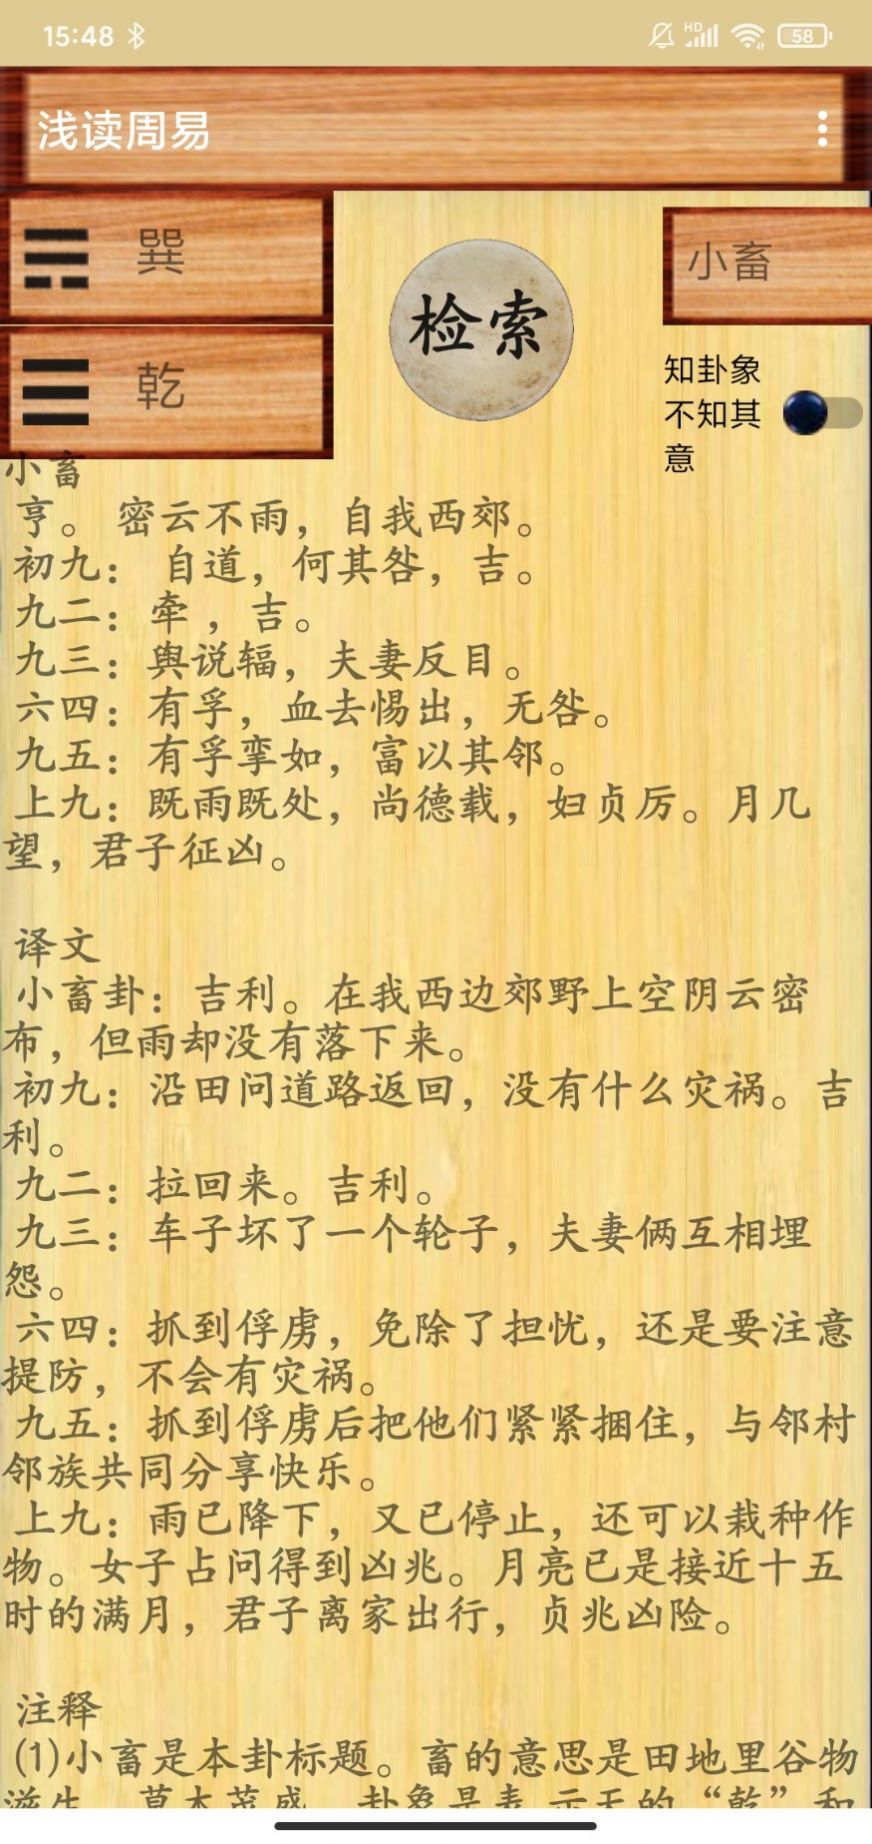 15:48
HD
58
浅读周易
巽
检索
小畜
乾
知卦象
不知其
意
小畜
亨。 密云不雨，自我西郊。
初九： 自道，何其咎，吉。
九二：牵 ，吉。
九三：舆说辐，夫妻反目。
六四：有孚，血去惕出，无咎。
九五：有孚挛如，富以其邻。
上九：既雨既处，尚德载，妇贞厉。月几
望，君子征凶。
译文
小畜卦：吉利。在我西边郊野上空阴云密
布，但雨却没有落下来。
初九：沿田问道路返回，没有什么灾祸。吉
利。
九二：拉回来。吉利。
九三：车子坏了一个轮子，夫妻俩互相埋
怨。
六四：抓到俘虏，免除了担忧，还是要注意
提防，不会有灾祸。
九五：抓到俘虏后把他们紧紧捆住，与邻村
邻族共同分享快乐。
上九：雨已降下，又已停止，还可以栽种作
物。女子占问得到凶兆。月亮已是接近十五
时的满月，君子离家出行，贞兆凶险。
注释
(1)小畜是本卦标题。畜的意思是田地里谷物
滋生，草木茂盛。卦象是表 示天的“乾”和